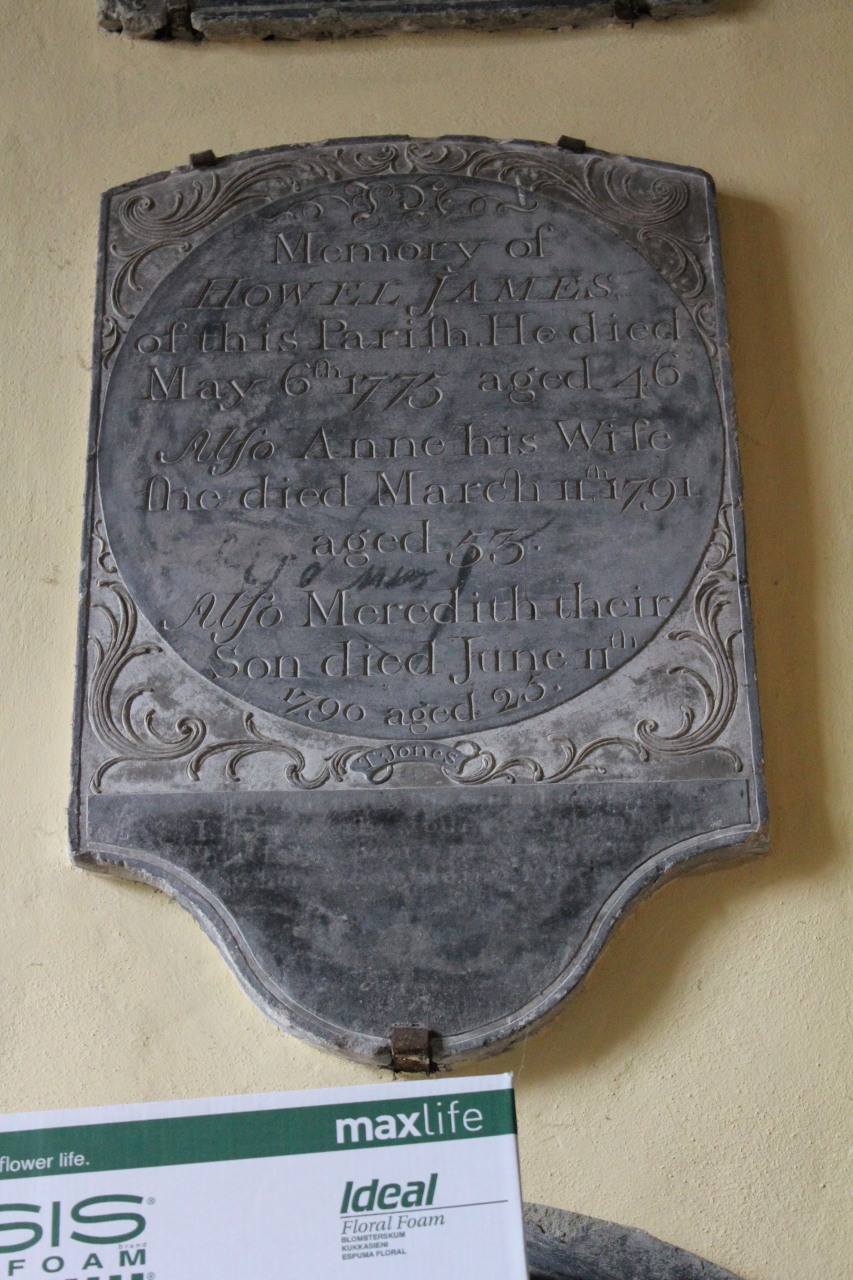 Memory of
HOWEL JAMES
of this Pariſh. He died
May 6th 1775 aged 46
Alſo Anne his Wife
ſhe died March 11th 1791
aged 53.
Alſo Meredith their
Son died June 11th
1790 aged 25.
T. Jones
maxlife
flower life.
SIS®
brand
FOAM
Ideal
Floral Foam
BLOMSTERSKUM
KUKKASIENI
ESPUMA FLORAL